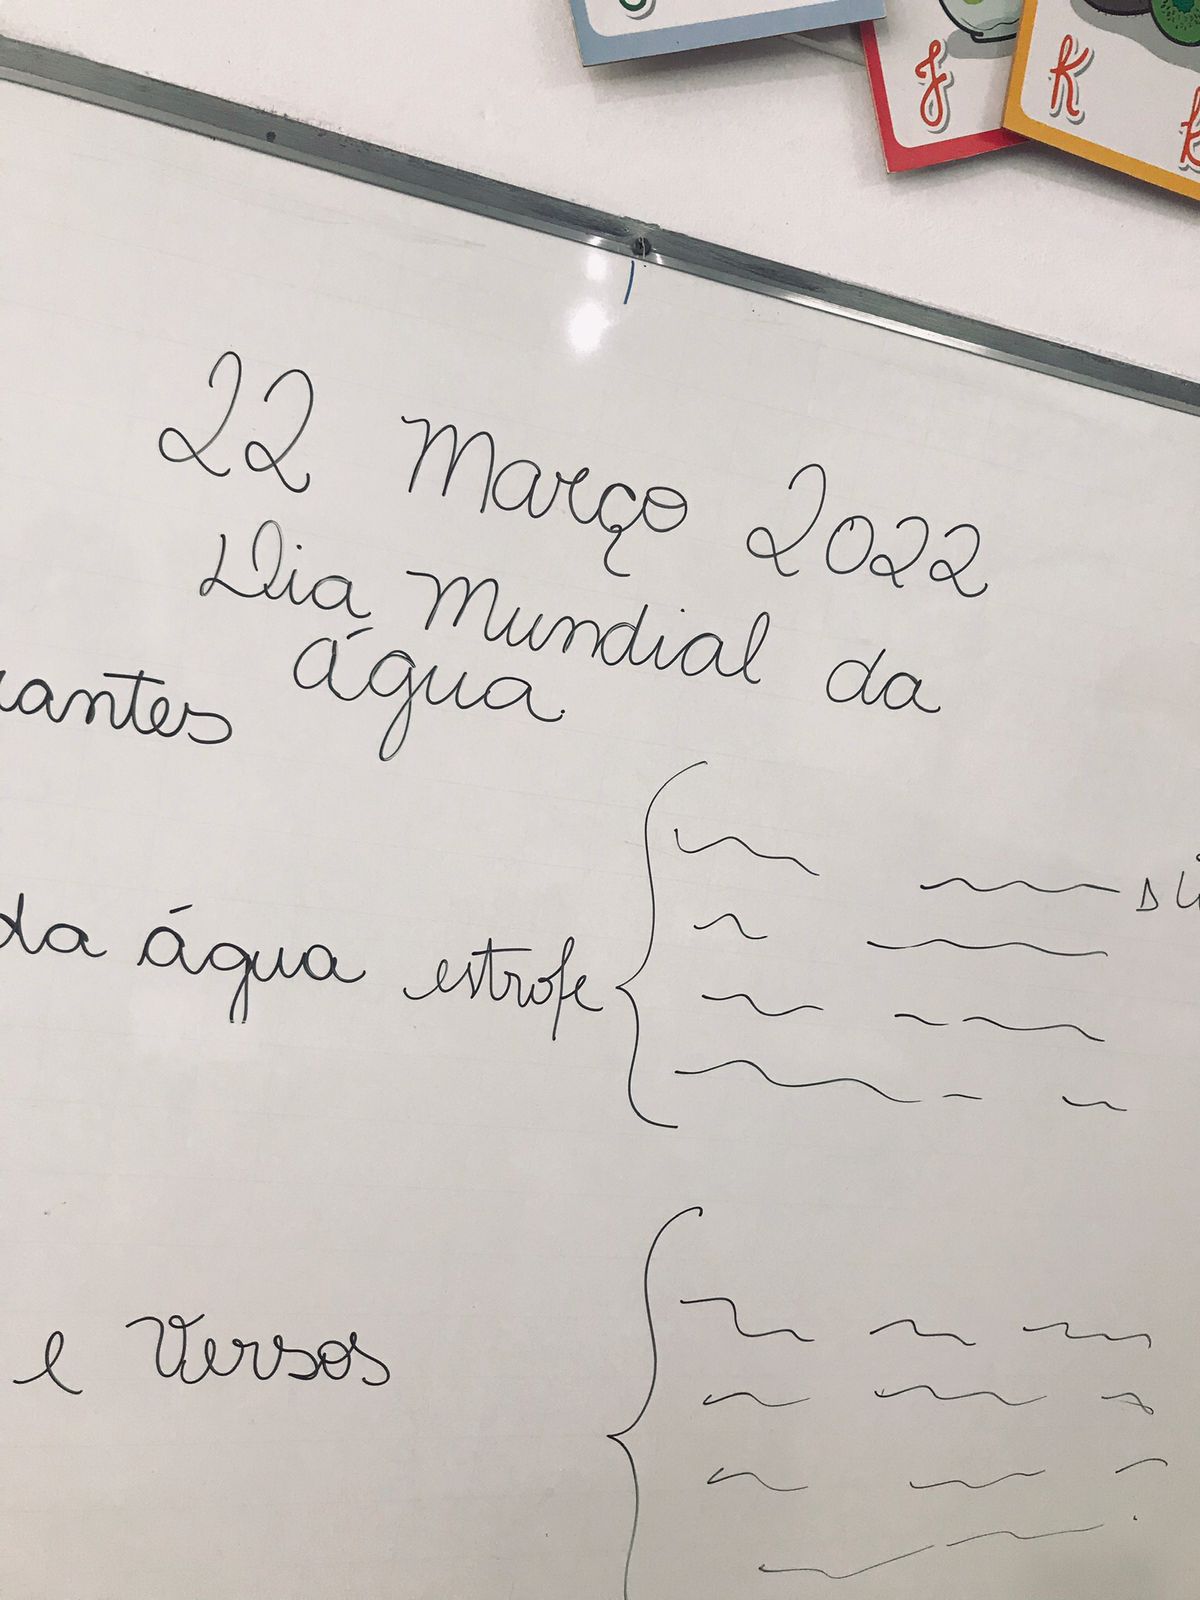 J K
22 Março 2022
Dia Mundial da
água.
antes
da água estrofe
e Versos